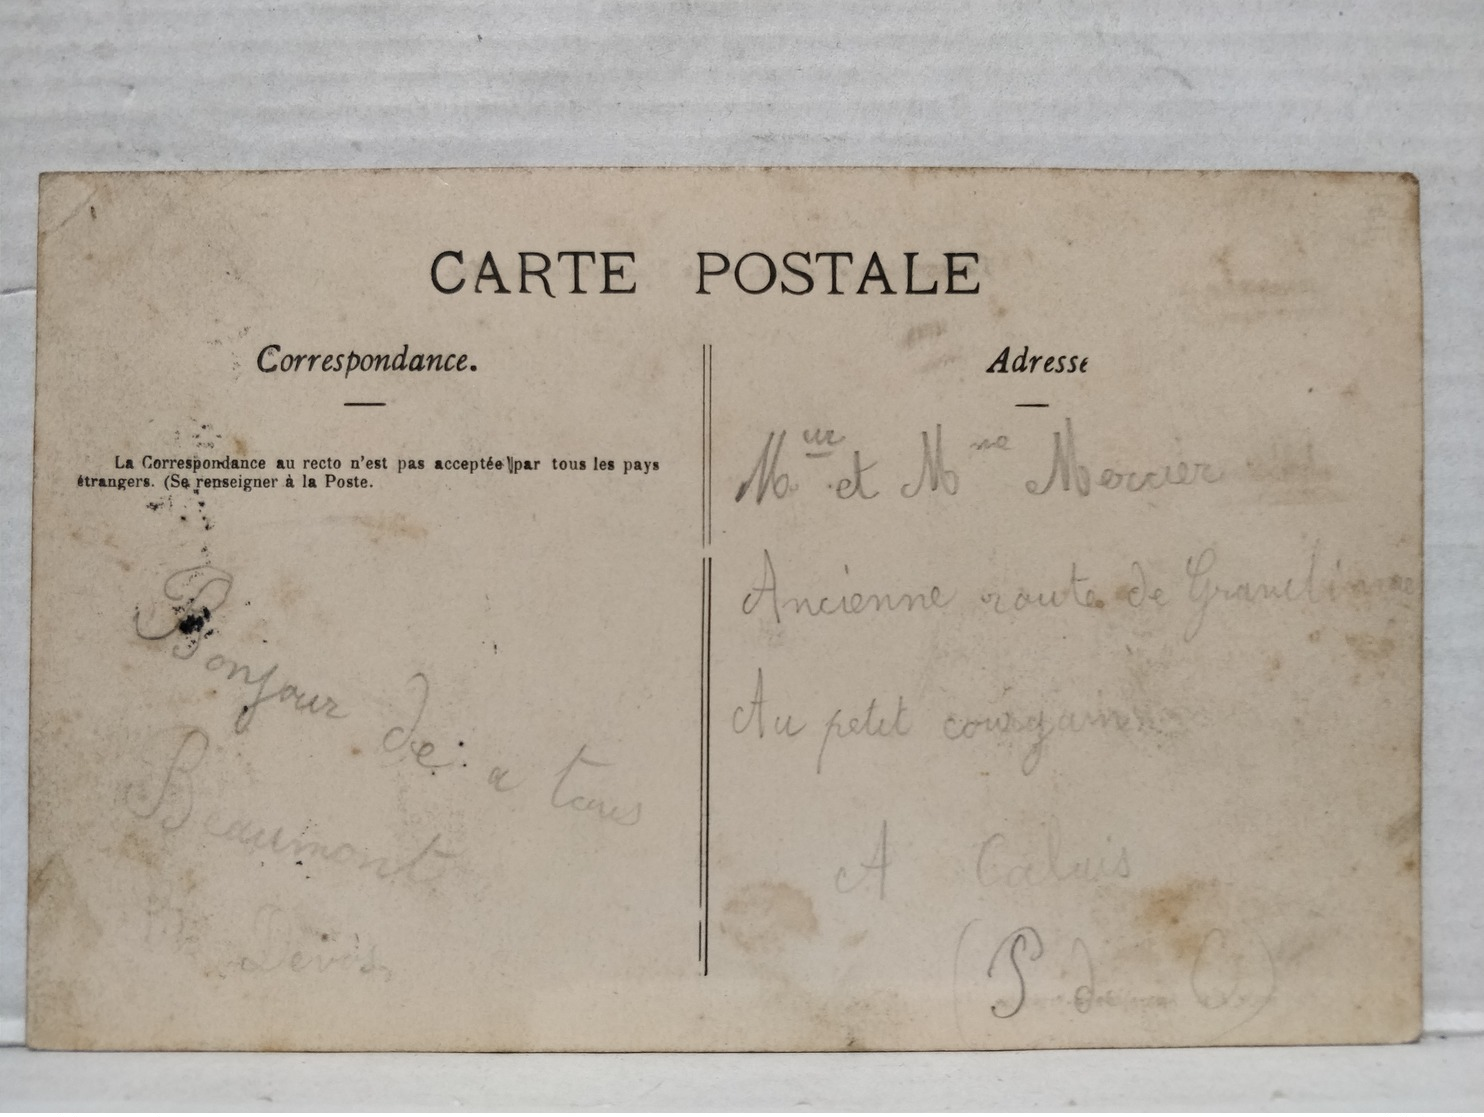 CARTE POSTALE
Correspondance.
La Correspondance au recto n'est pas acceptée par tous les pays
étrangers. (Se renseigner à la Poste.
Bonjour de a tous
Beaumont
Adresse
Mur et Mme Mercier
Ancienne route de
Au petit courgain
A Calais
(P de C)